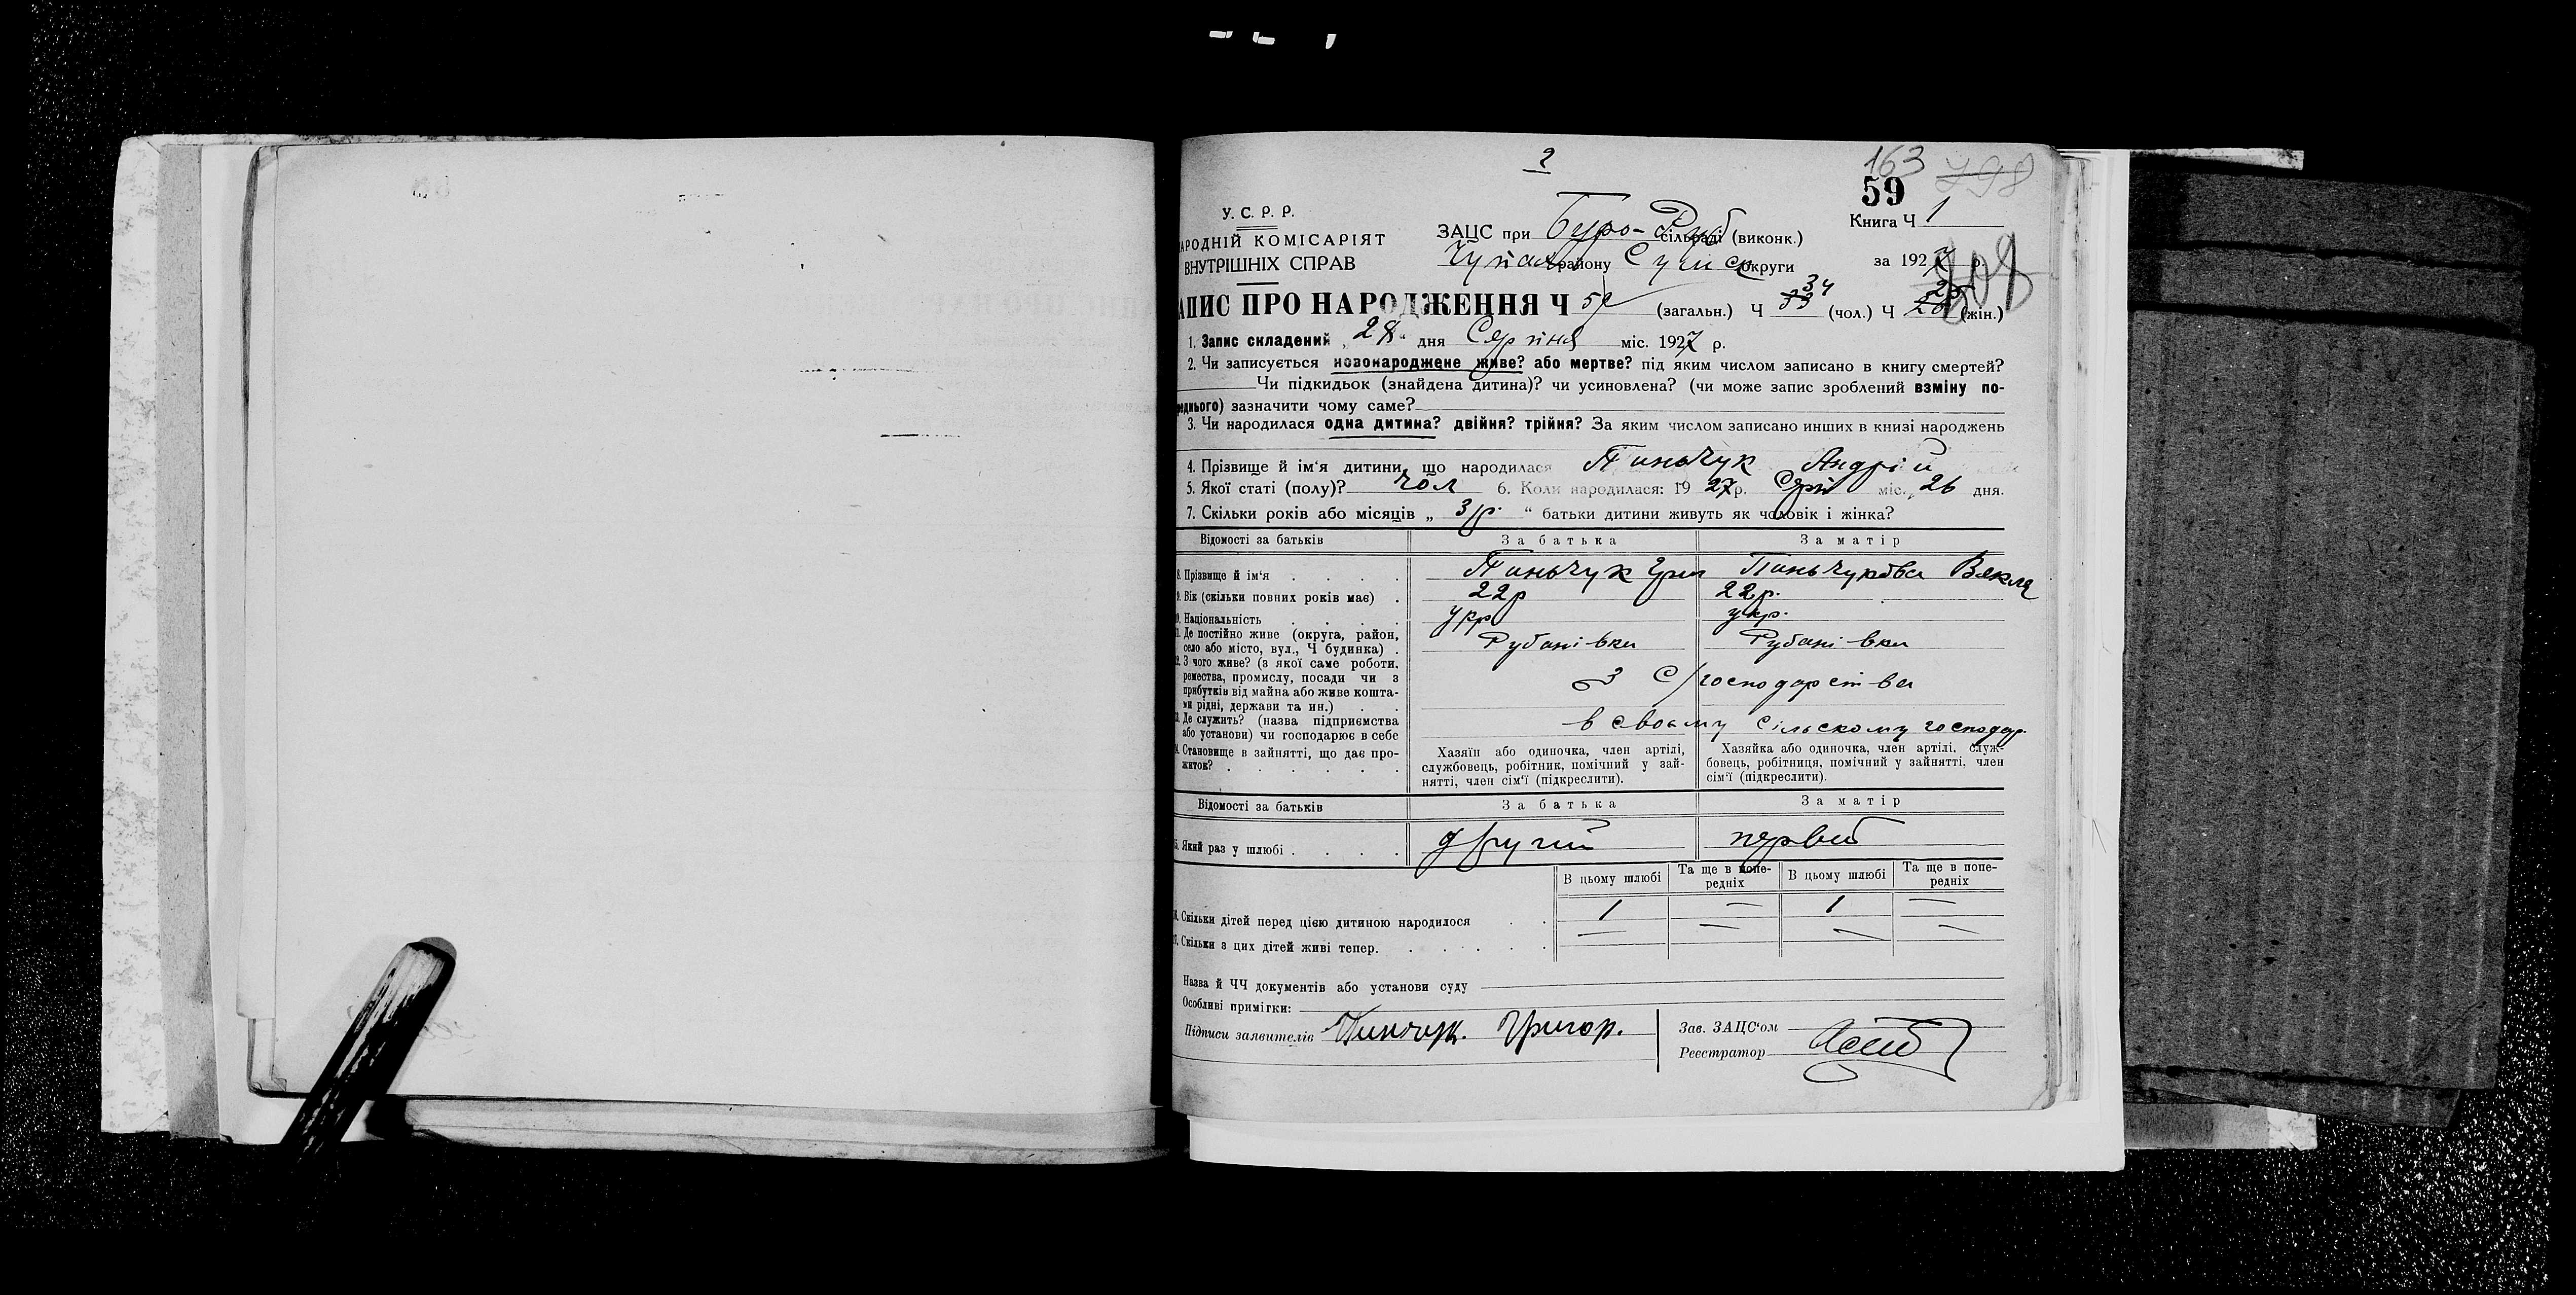 2
163 798
59
У. С. Р. Р.
ЗАЦС при Беро-Руб сільраді (виконк.)
Книга Ч 1
АРОДНІЙ КОМІСАРІЯТ
ВНУТРІШНІХ СПРАВ
району Сумськ округи
за 1927 р.
АПИС ПРО НАРОДЖЕННЯ Ч (загальн.) Ч 33 34 (чол.) Ч (жін.)
1. Запис складений „28“ дня Серпня міс. 1927 р.
2. Чи записується новонароджене живе? або мертве? під яким числом записано в книгу смертей?
Чи підкидьок (знайдена дитина)? чи усиновлена? (чи може запис зроблений взміну по-
реднього) зазначити чому саме?
3. Чи народилася одна дитина? двійня? трійня? За яким числом записано инших в книзі народжень
4. Прізвище й ім'я дитини, що народилася Пиньчук Андрій
5. Якої статі (полу)? чол 6. Коли народилася: 1927р. Серп міс. 26 дня.
7. Скільки років або місяців „ 3 р. “ батьки дитини живуть як чоловік і жінка?
Відомості за батьків За батька За матір
8. Прізвище й ім'я Пиньчук Гри Пиньчукова Векля
9. Вік (скільки повних років має) 22р 22р.
10. Національність укр укр.
11. Де постійно живе (округа, район,
село або місто, вул., Ч будинка) Рубанівка Рубанівка
12. З чого живе? (з якої саме роботи,
ремества, промислу, посади чи з
прибутків від майна або живе кошта-
ми рідні, держави та ин.) З С/господарства
13. Де служить? (назва підприємства
або установи) чи господарює в себе в своєму сільскому господар.
14. Становище в зайнятті, що дає про-
житок?
Хазяїн або одиночка, член артілі,
службовець, робітник, помічний у зай-
нятті, член сім'ї (підкреслити).
Хазяйка або одиночка, член артілі, служ-
бовець, робітниця, помічний у зайнятті, член
сім'ї (підкреслити).
Відомості за батьків За батька За матір
15. Який раз у шлюбі другий первий
В цьому шлюбі Та ще в попе-
редніх В цьому шлюбі Та ще в попе-
редніх
16. Скільки дітей перед цією дитиною народилося 1 — 1 —
17. Скільки з цих дітей живі тепер. — — — —
Назва й ЧЧ документів або установи суду
Особливі примітки:
Підписи заявителів Пинчук. Григор.
Зав. ЗАЦС'ом
Реєстратор